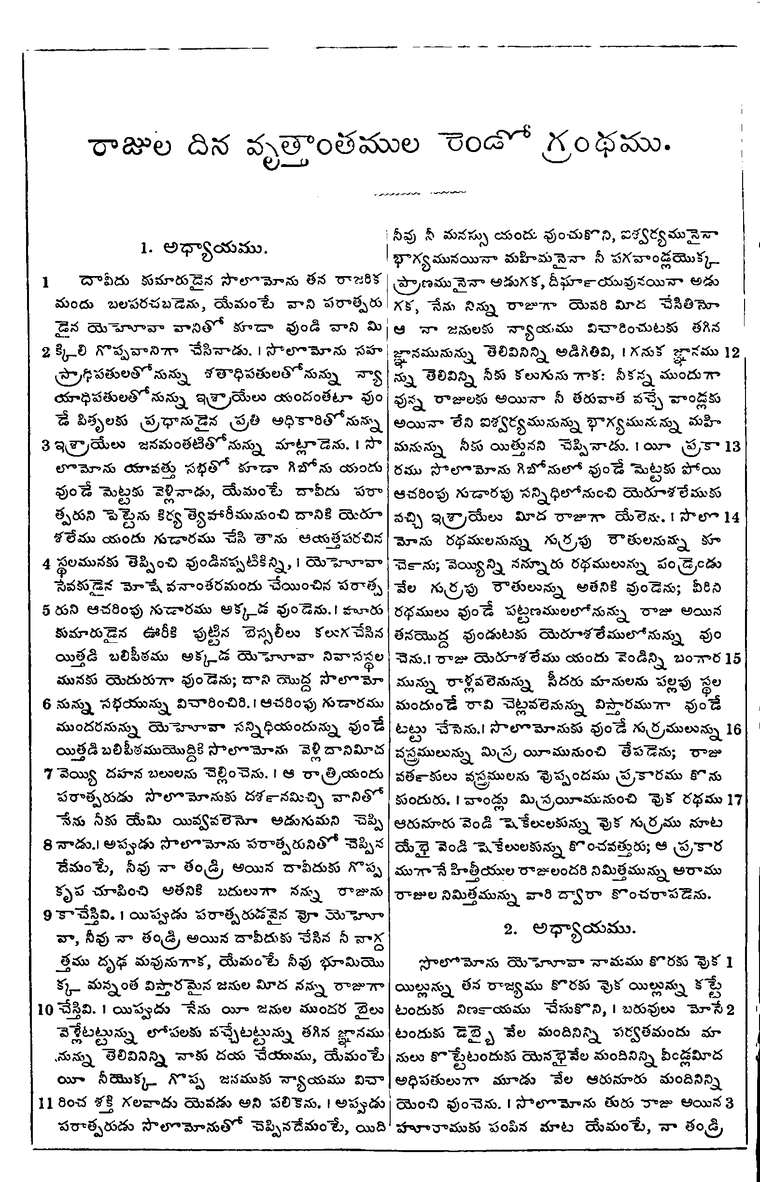 రాజుల దిన వృత్తాంతముల రెండో గ్రంథము.
1. అధ్యాయము.
1 దావీదు కుమారుడైన సొలొమోను తన రాజరిక
మందు బలపరచబడెను, యేమంటే వాని పరాత్పరు
డైన యెహోవా వానితో కూడా వుండి వాని మి
2 క్కిలి గొప్పవానిగా చేసినాడు. । సొలొమోను సహ
స్రాధిపతులతోనున్ను శతాధిపతులతోనున్ను న్యా
యాధిపతులతోనున్ను ఇశ్రాయేలు యందంతటా వుం
డే పితృలకు ప్రధానుడైన ప్రతి అధికారితోనున్ను
3 ఇశ్రాయేలు జనమంతటితోనున్ను మాట్లాడెను. । సొ
లొమోను యావత్తు సభతో కూడా గిబోను యందు
వుండే మెట్టకు వెళ్లినాడు, యేమంటే దావీదు పరా
త్పరుని పెట్టెను కిర్యత్యెహారీమునుంచి దానికి యెరూ
శలేము యందు గుడారము చేసి తాను ఆయత్తపరచిన
4 స్థలమునకు తెప్పించి వుండినప్పటికిన్ని, । యెహోవా
సేవకుడైన మోషే వనాంతరమందు చేయించిన పరాత్ప
5 రుని ఆచరింపు గుడారము అక్కడ వుండెను. । హూరు
కుమారుడైన ఊరీకి పుట్టిన బెస్సలీలు కలుగచేసిన
యిత్తడి బలిపీఠము అక్కడ యెహోవా నివాసస్థల
మునకు యెదురుగా వుండెను; దాని యొద్ద సొలొమో
6 నున్ను సభయున్ను విచారించిరి. । ఆచరింపు గుడారము
ముందరనున్ను యెహోవా సన్నిధియందున్ను వుండే
యిత్తడి బలిపీఠముయొద్దికి సొలొమోను వెళ్లి దానిమీద
7 వెయ్యి దహన బలులను చెల్లించెను. । ఆ రాత్రియందు
పరాత్పరుడు సొలొమోనుకు దర్శనమిచ్చి వానితో
నేను నీకు యేమి యివ్వవలెనో అడుగుమని చెప్పి
8 నాడు. । అప్పుడు సొలొమోను పరాత్పరునితో చెప్పిన
దేమంటే, నీవు నా తండ్రి అయిన దావీదుకు గొప్ప
కృప చూపించి అతనికి బదులుగా నన్ను రాజును
9 కాచేస్తివి. । యిప్పుడు పరాత్పరుడవైన వో యెహో
వా, నీవు నా తండ్రి అయిన దావీదుకు చేసిన నీ వాగ్ద
త్తము దృఢ మవునుగాక, యేమంటే నీవు భూమియొ
క్క మన్నంత విస్తారమైన జనుల మీద నన్ను రాజుగా
10 చేస్తివి. । యిప్పుడు నేను యీ జనుల ముందర బైలు
వెళ్లేటట్టున్ను లోపలకు వచ్చేటట్టున్ను తగిన జ్ఞానము
నున్ను తెలివినిన్ని నాకు దయ చేయుము, యేమంటే
యీ నీయొక్క గొప్ప జనముకు న్యాయము విచా
11 రించ శక్తి గలవాడు యెవడు అని పలికెను. । అప్పుడు
పరాత్పరుడు సొలొమోనుతో చెప్పినదేమంటే, యిది
నీవు నీ మనస్సు యందు వుంచుకొని, ఐశ్వర్యమునైనా
భాగ్యమునయినా మహిమనైనా నీ పగవాండ్లయొక్క
ప్రాణమునైనా అడుగక, దీర్ఘాయువునయినా అడు
గక, నేను నిన్ను రాజుగా యెవరి మీద చేసితినో
ఆ నా జనులకు న్యాయము విచారించుటకు తగిన
జ్ఞానమునున్ను తెలివినిన్ని అడిగితివి, । గనుక జ్ఞానము 12
న్ను తెలివిన్ని నీకు కలుగును గాక: నీకన్న ముందుగా
వున్న రాజులకు అయినా నీ తరువాత వచ్చే వాండ్లకు
అయినా లేని ఐశ్వర్యమునున్ను భాగ్యమునున్ను మహి
మనున్ను నీకు యిత్తునని చెప్పినాడు. । యీ ప్రకా 13
రము సొలొమోను గిబోనులో వుండే మెట్టకు పోయి
ఆచరింపు గుడారపు సన్నిధిలోనుంచి యెరూశలేముకు
వచ్చి ఇశ్రాయేలు మీద రాజుగా యేలెను. । సొలొ 14
మోను రథములనున్ను గుర్రపు రౌతులనున్ను కూ
చెను; వెయ్యిన్ని నన్నూరు రథములున్ను పండ్రెండు
వేల గుర్రపు రౌతులున్ను అతనికి వుండెను; వీరిని
రథములు వుండే పట్టణములలోనున్ను రాజు అయిన
తనయొద్ద వుండుటకు యెరూశలేములోనున్ను వుం
చెను. । రాజు యెరూశలేము యందు వెండిన్ని బంగార 15
మున్ను రాళ్లవలెనున్ను సీదరు మానులను పల్లపు స్థల
మందుండే రావి చెట్లవలెనున్ను విస్తారముగా వుండే
టట్టు చేసెను. । సొలొమోనుకు వుండే గుర్రములున్ను 16
వస్త్రములున్ను మిస్ర యీమునుంచి తేపడెను; రాజు
వర్తకులు వస్త్రములను వొప్పందము ప్రకారము కొను
కుందురు. । వాండ్లు మిస్రయీమునుంచి వొక రథము 17
ఆరునూరు వెండి షెకేలులకున్ను వొక గుర్రము నూట
యేభై వెండి షెకేలులకున్ను కొంచవత్తురు; ఆ ప్రకార
ముగానే హిత్తీయుల రాజులందరి నిమిత్తమున్ను అరాము
రాజుల నిమిత్తమున్ను వారి ద్వారా కొంచరాపడెను.
2. అధ్యాయము.
సొలొమోను యెహోవా నామము కొరకు వొక 1
యిల్లున్ను తన రాజ్యము కొరకు వొక యిల్లున్ను కట్టే
టందుకు నిర్ణయము చేసుకొని, । బరువులు మోసే 2
టందుకు డెబ్భై వేల మందినిన్ని పర్వతమందు మా
నులు కొట్టేటందుకు యెనభైవేల మందినిన్ని వీండ్లమీద
అధిపతులుగా మూడు వేల ఆరునూరు మందినిన్ని
యెంచి వుంచెను. । సొలొమోను తురు రాజు అయిన 3
హూరాముకు పంపిన మాట యేమంటే, నా తండ్రి